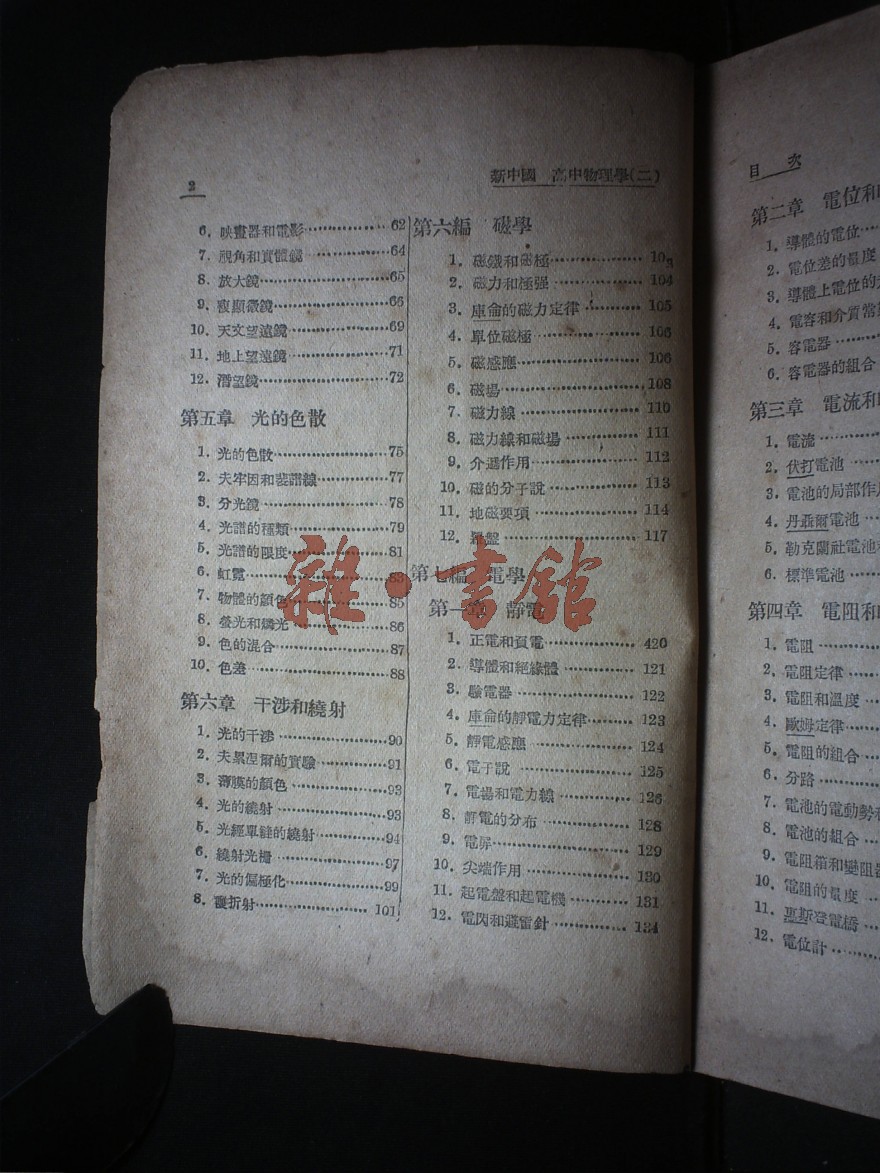 2
新中國 高中物理學(二)
6. 映畫器和電影 62
7. 視角和實體鏡 64
8. 放大鏡 65
9. 複顯微鏡 66
10. 天文望遠鏡 69
11. 地上望遠鏡 71
12. 潛望鏡 72
第五章 光的色散
1. 光的色散 75
2. 夫牢因和斐譜線 77
3. 分光鏡 78
4. 光譜的種類 79
5. 光譜的限度 81
6. 虹霓 83
7. 物體的顏色 85
8. 螢光和燐光 86
9. 色的混合 87
10. 色差 88
第六章 干涉和繞射
1. 光的干涉 90
2. 夫累涅爾的實驗 91
3. 薄膜的顏色 93
4. 光的繞射 93
5. 光經單縫的繞射 94
6. 繞射光柵 97
7. 光的偏極化 99
8. 覆折射 101
第六編 磁學
1. 磁鐵和磁極
2. 磁力和極强 104
3. 庫侖的磁力定律 105
4. 單位磁極 106
5. 磁感應 106
6. 磁場 108
7. 磁力線 110
8. 磁力線和磁場 111
9. 介遞作用 112
10. 磁的分子說 113
11. 地磁要項 114
12. 盤 117
第七編 電學
第一章 靜電
1. 正電和負電 420
2. 導體和絕緣體 121
3. 驗電器 122
4. 庫侖的靜電力定律 123
5. 靜電感應 124
6. 電子說 125
7. 電場和電力線 126
8. 靜電的分布 128
9. 電屏 129
10. 尖端作用 130
11. 起電盤和起電機 131
12. 電閃和避雷針 134
雜·書館
目 次
第二章 電位和
1. 導體的電位
2. 電位差的量度
3. 導體上電位的
4. 電容和介質常
5. 容電器
6. 容電器的組合
第三章 電流和
1. 電流
2. 伏打電池
3. 電池的局部作
4. 丹聶爾電池
5. 勒克蘭社電池
6. 標準電池
第四章 電阻和
1. 電阻
2. 電阻定律
3. 電阻和溫度
4. 歐姆定律
5. 電阻的組合
6. 分路
7. 電池的電動勢
8. 電池的組合
9. 電阻箱和變阻器
10. 電阻的量度
11. 惠斯登電橋
12. 電位計